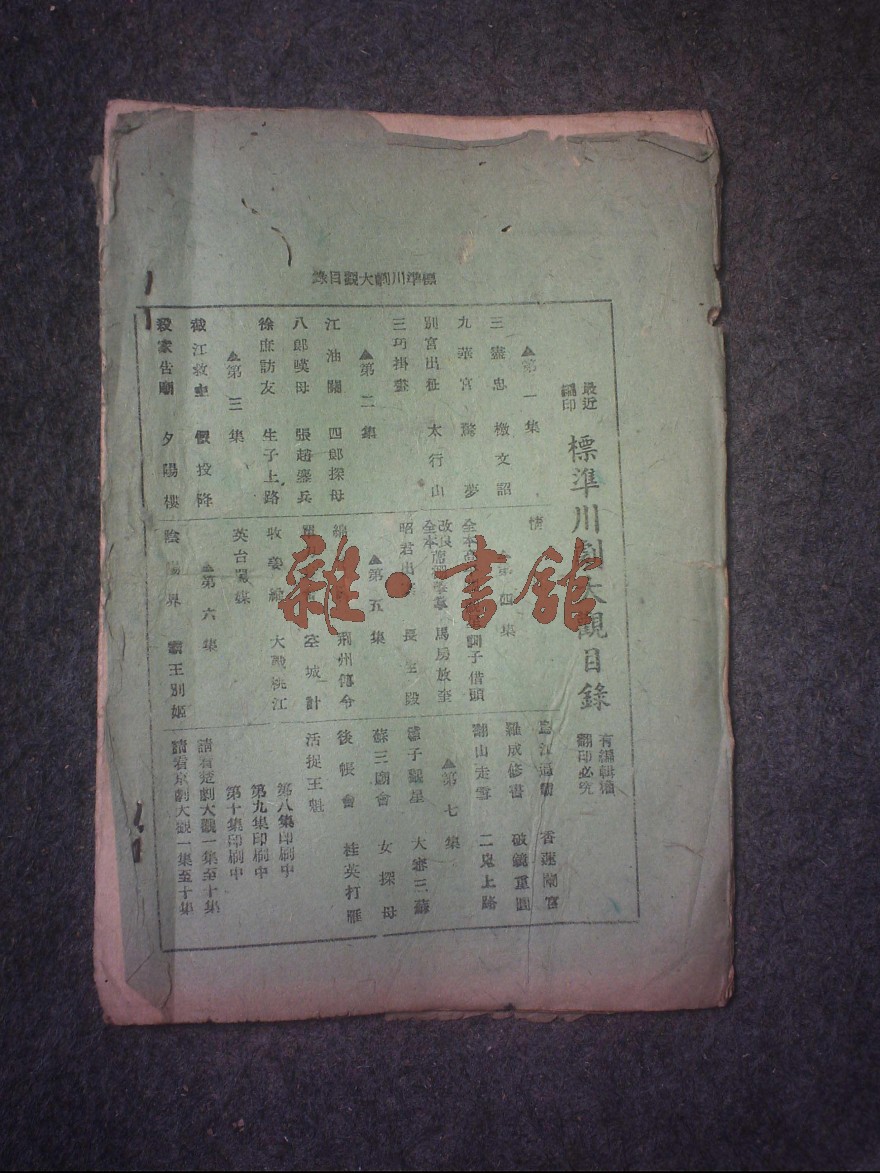 標準川劇大觀目錄
最近
編印
標準川劇大觀目錄
有編輯權
翻印必究
▲第一集
三盡忠 檄文詔
九華宮 驚夢
別宮出征 太行山
三巧掛畫
▲第二集
江油關 四郎探母
八郎嘆母 張趙鏖兵
徐庶訪友 生子上路
▲第三集
截江救主 假投降
殺家告廟 夕陽樓
情
第四集
全本 調子借頭
改良
全本 馬房放奎
昭君出 長生殿
▲第五集
荊州傳令
空城計
收姜維 大戰桃江
英台罵媒
▲第六集
陰陽界 霸王別姬
烏江逼霸 香蓮闖宮
羅成修書 破鏡重圓
翻山走雪 二鬼上路
▲第七集
禮子觀星 大審三蘇
蘇三廟會 女探母
後帳會 桂英打雁
活捉王魁
第八集印刷中
第九集印刷中
第十集印刷中
請看楚劇大觀一集至十集
請看京劇大觀一集至十集
雜·書館